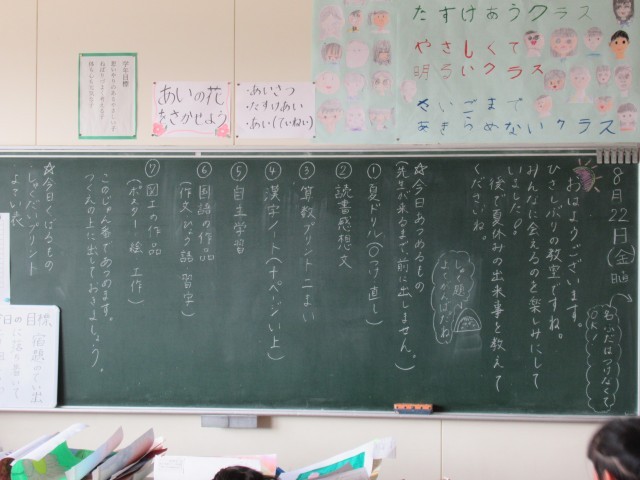 たすけあうクラス
やさしくて
明るいクラス
さいごまで
あきらめないクラス
あいさつ
・たすけあい
・あい(ていねい)
あいの花
をさかせよう
学年目標
8月22日(金)
おはようございます。
ひさしぶりの教室ですね。
みんなに会えるのを楽しみにして
いました。
後で夏休みの出来事を教えて
くださいね。
しゅく題
よくがんばったね
☆今日あつめるもの
(先生が来るまで、前に出しません。)
①夏ドリル(○つけ、直し)
②読書感想文
③算数プリント二まい
④漢字ノート(十ページい上)
⑤自主学習
⑥国語の作品
⑦図工の作品
(ポスター、絵、工作)
このじゅん番であつめます。
つくえの上に出しておきましょう。
☆今日くばるもの
・しゅくだいプリント
目標